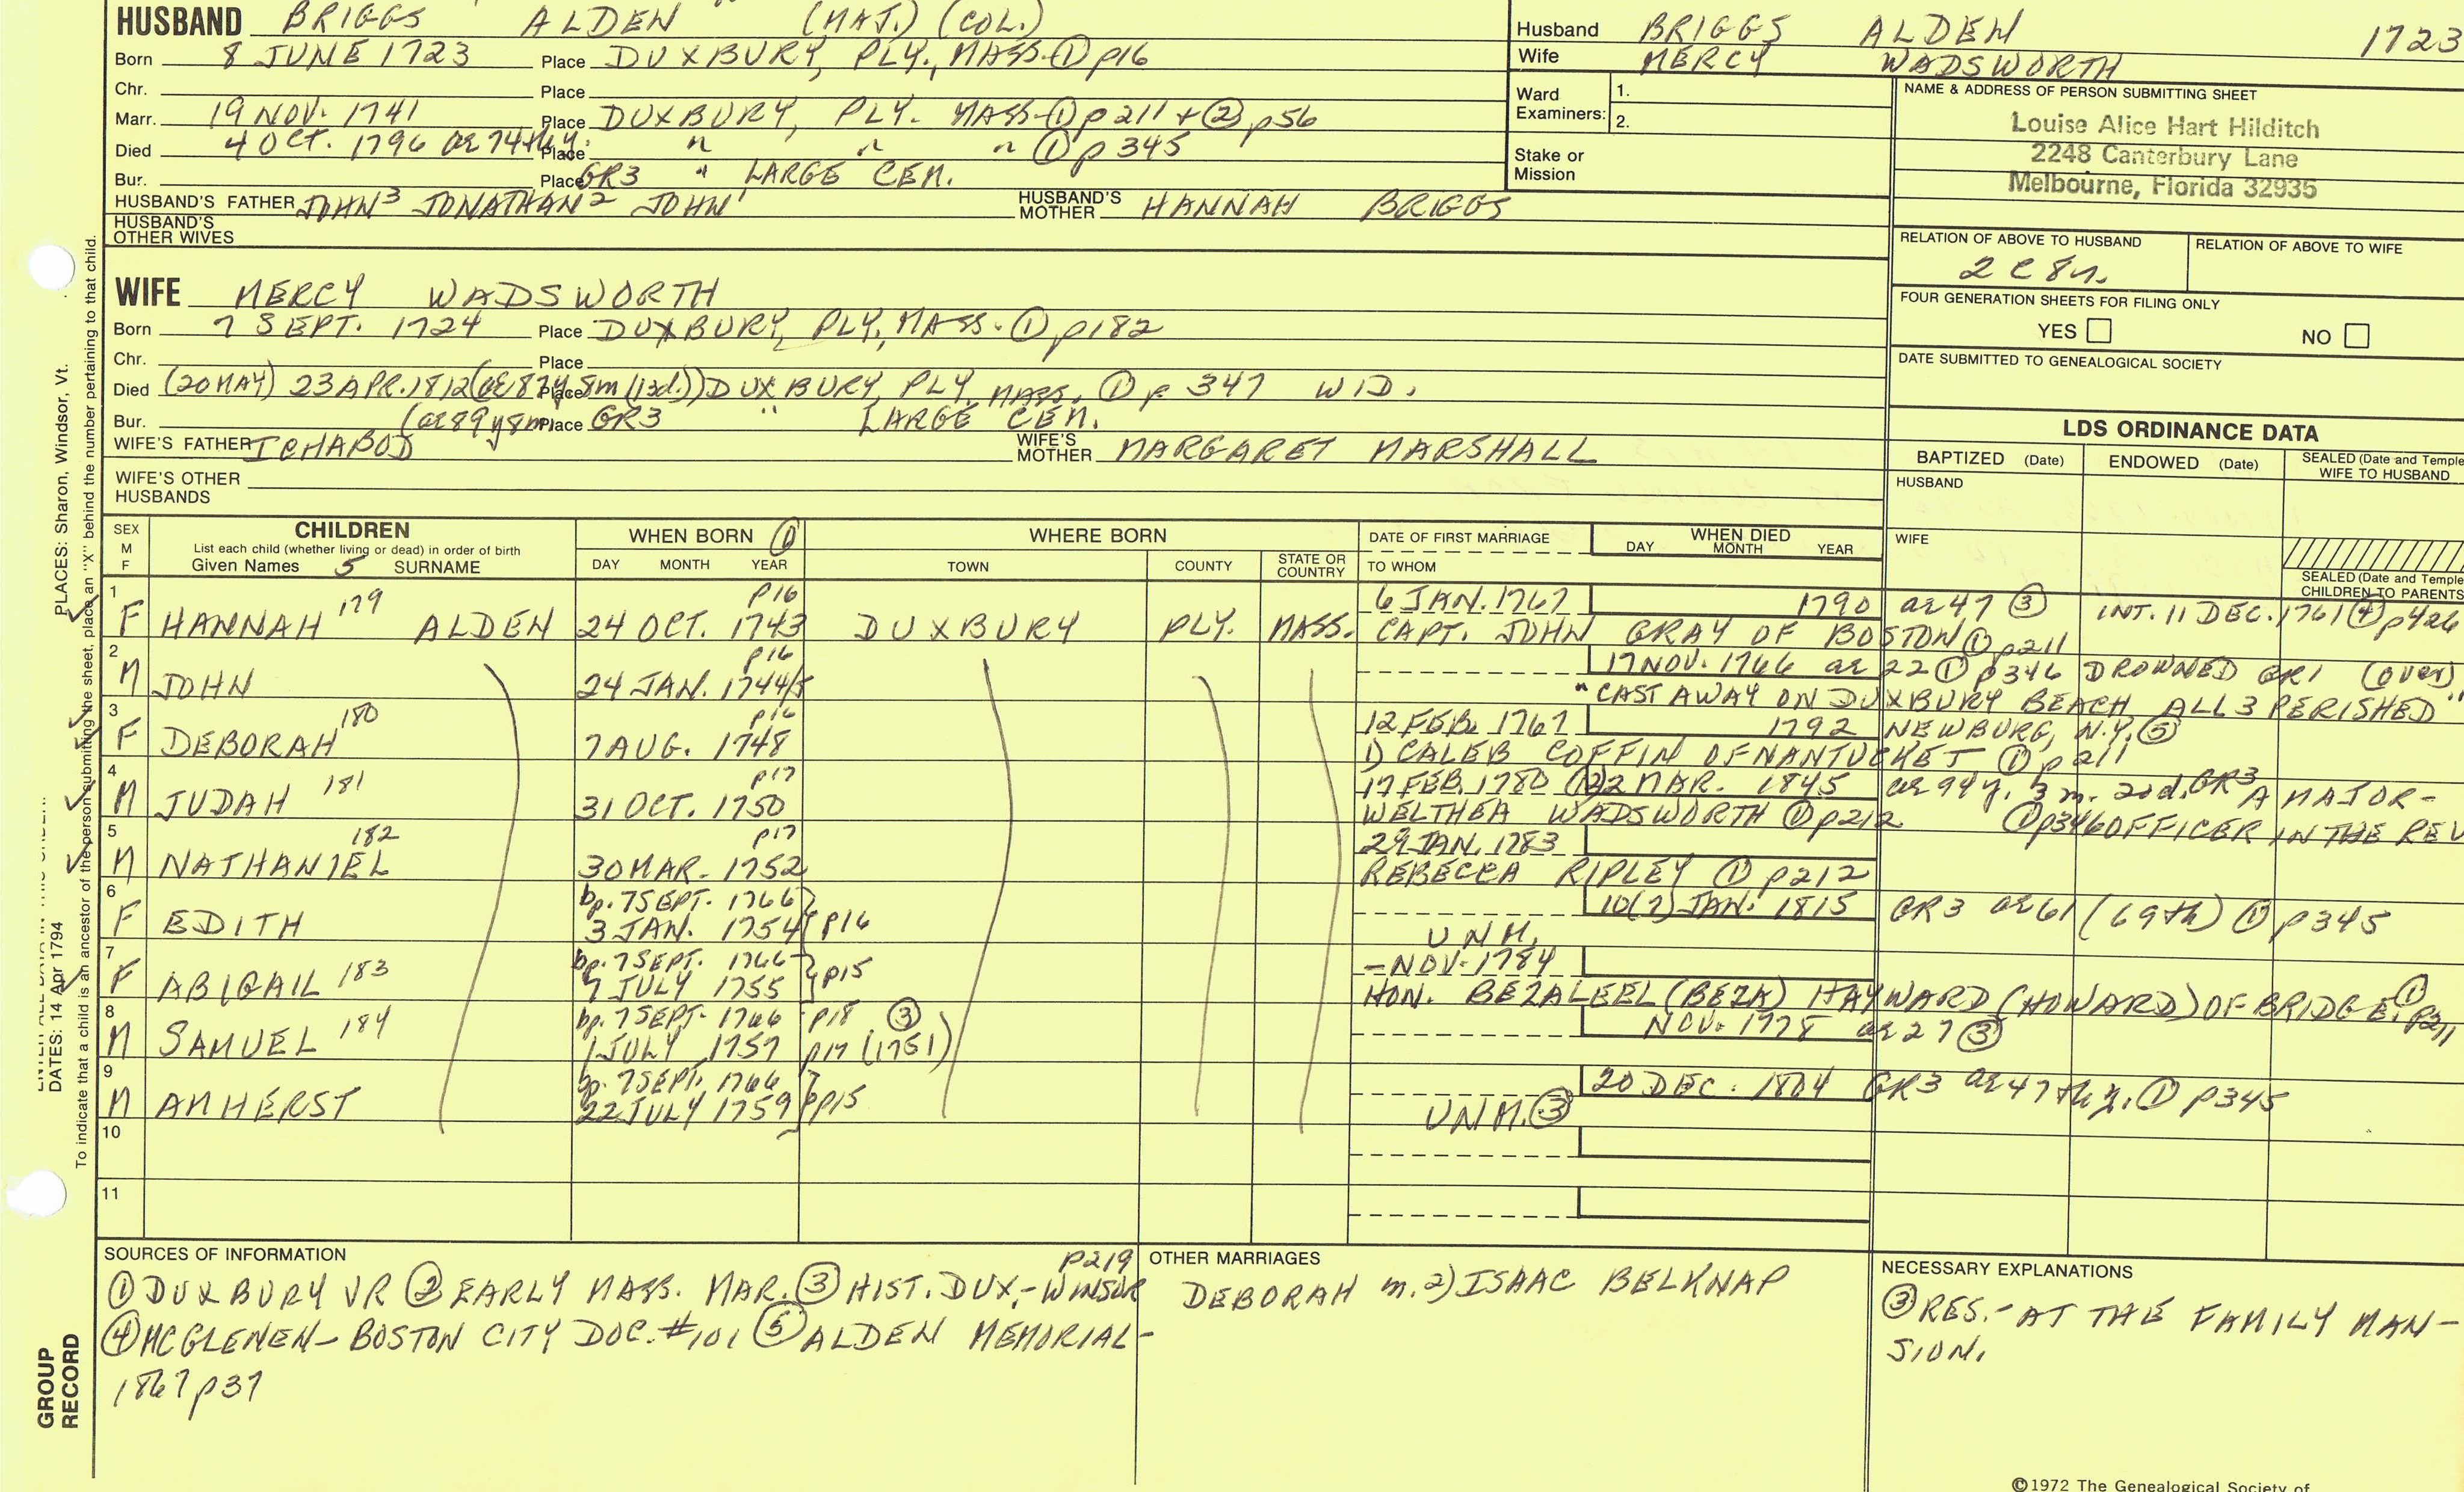 HUSBAND BRIGGS ALDEN (MAJ.) (COL.)
Born 8 JUNE 1723 Place DUXBURY, PLY., MASS. ① p16
Chr. Place
Marr. 19 NOV. 1741 Place DUXBURY, PLY. MASS. ① p211 + ② p56
Died 4 OCT. 1796 ae 74th y. Place " " " ① p345
Bur. Place GR3 " LARGE CEM.
HUSBAND'S FATHER JOHN³ JONATHAN² JOHN¹ HUSBAND'S MOTHER HANNAH BRIGGS
HUSBAND'S OTHER WIVES
WIFE MERCY WADSWORTH
Born 7 SEPT. 1724 Place DUXBURY, PLY., MASS. ① p182
Chr. Place
Died (20 MAY) 23 APR. 1812 (ae 87y 8m (13d.)) Place DUXBURY, PLY. MASS. ① p 347 WID.
Bur. (ae 89y 8m) Place GR3 " LARGE CEM.
WIFE'S FATHER ICHABOD WIFE'S MOTHER MARGARET MARSHALL
WIFE'S OTHER HUSBANDS
Husband BRIGGS ALDEN 1723
Wife MERCY WADSWORTH
Ward Examiners: 1.
2.
Stake or Mission
NAME & ADDRESS OF PERSON SUBMITTING SHEET
Louise Alice Hart Hilditch
2248 Canterbury Lane
Melbourne, Florida 32935
RELATION OF ABOVE TO HUSBAND RELATION OF ABOVE TO WIFE
2 C 8 r.
FOUR GENERATION SHEETS FOR FILING ONLY
YES NO
DATE SUBMITTED TO GENEALOGICAL SOCIETY
LDS ORDINANCE DATA
BAPTIZED (Date) ENDOWED (Date) SEALED (Date and Temple) WIFE TO HUSBAND
HUSBAND
WIFE
SEALED (Date and Temple) CHILDREN TO PARENTS
SEX M F CHILDREN WHEN BORN ① WHERE BORN DATE OF FIRST MARRIAGE WHEN DIED
List each child (whether living or dead) in order of birth
Given Names 5 SURNAME DAY MONTH YEAR TOWN COUNTY STATE OR COUNTRY TO WHOM DAY MONTH YEAR
1 p16 6 JAN. 1767 1790 ae 47 ③ INT. 11 DEC. 1761 ④ p426
F HANNAH 179 ALDEN 24 OCT. 1743 DUXBURY PLY. MASS. CAPT. JOHN GRAY OF BOSTON ① p211
2 p16 17 NOV. 1766 ae 22 ① p346 DROWNED GR1 (over)
M JOHN 24 JAN. 1744/5 "CAST AWAY ON DUXBURY BEACH ALL 3 PERISHED"
3 p16 12 FEB. 1767 1792 NEWBURG, N.Y. ⑤
F DEBORAH 180 7 AUG. 1748 1) CALEB COFFIN OF NANTUCKET ① p211
4 p17 17 FEB. 1780 (12) 2 MAR. 1845 ae 94y. 3m. 20d. GR3 A MAJOR-
M JUDAH 181 31 OCT. 1750 WELTHEA WADSWORTH ① p212 ① p346 OFFICER IN THE REV
5 p17 29 JAN. 1783
M NATHANIEL 182 30 MAR. 1752 REBECCA RIPLEY ① p212
6 bp. 7 SEPT. 1766 10(7) JAN. 1815 GR3 ae 61 (69th) ① p345
F EDITH 3 JAN. 1754 p16 UNM.
7 bp. 7 SEPT. 1766 p15 – NOV. 1784
F ABIGAIL 183 7 JULY 1755 HON. BEZALEEL (BEZA) HAYWARD (HOWARD) OF BRIDGE. ① p211
8 bp. 7 SEPT. 1766 p18 ③ NOV. 1778 ae 27 ③
M SAMUEL 184 1 JULY 1757 p17 (1751)
9 bp. 7 SEPT. 1766 20 DEC. 1804 GR3 ae 47th y. ① p345
M AMHERST 22 JULY 1759 p15 UNM. ③
10
11
SOURCES OF INFORMATION p219
① DUXBURY VR ② EARLY MASS. MAR. ③ HIST. DUX.- WINSOR
④ MCGLENEN- BOSTON CITY DOC. #101 ⑤ ALDEN MEMORIAL-
1867 p37
OTHER MARRIAGES
DEBORAH m. 2) ISAAC BELKNAP
NECESSARY EXPLANATIONS
③ RES.- AT THE FAMILY MAN-
SION.
©1972 The Genealogical Society of
PLACES: Sharon, Windsor, Vt.
DATES: 14 Apr 1794
To indicate that a child is an ancestor of the person submitting the sheet, place an "X" behind the number pertaining to that child.
GROUP
RECORD